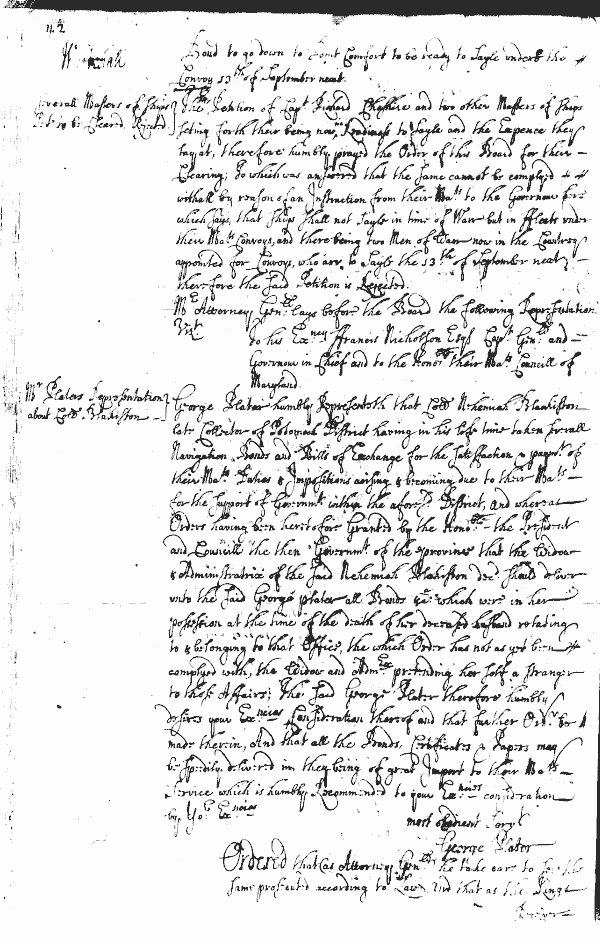 42
Boud to go down to Point Comfort to be ready to Sayle under the
Convoy 13th of September next.
Severall Masters of Ships
Pet: to be Cleared Rejected
The Petition of Capt Richard and two other Masters of Ships
seting forth their being now in Readiness to Sayle and the Expence they
lay at, therefore humbly prayed the Order of this Board for their
Clearing; To which was answered that the same cannot be complyed
withall by reason of an Instruction from their Mats to the Governour here
which says, that Ships shall not Sayle in time of Warr but in ffleets under
their Mats Convoys, and there being two Men of Warr now in the Countrey
appointed for Convoys, who are to Sayle the 13th of September next
therefore the said Petition is Rejected.
Mr Attorney Genll lays before the Board the following Representation
Vizt
To his Exncy ffrancis Nicholson Esqr Capt Genll and
Governour in Chief and to the Honoble their Mats Councill of
Maryland
Mr Platers Representation
about Coll Blakiston
George Plater humbly Representeth that Coll Nehemiah Blakiston
late Collector of Potomack District having in his life time taken severall
Navigation Bonds and Bills of Exchange for the Satisfaction & paymt of
their Mats Duties & Impositions arising & becoming due to their Mats
for the support of Governmt within the aforesd District, and whereas
Orders having been heretofore Granted by the Honoble the President
and Councill the then Governmt of the province that the Widow
& Administratrix of the said Nehemiah Blakiston decd should deliver
unto the said George Plater all Bonds &ca which were in her
possession at the time of the death of her deceased husband relating
to & belonging to that Office, the which Order has not as yet been
complyed with, the Widow and Admx pretending her self a stranger
to those Affairs; The said George Plater therefore humbly
desires your Exncies Consideration thereof and that further Ordr be
made therein, And that all the Bonds, Certificates & Papers may
be speedily delivered in they being of great Import to their Mats
Service which is humbly Recommended to your Exncies consideration
by Yor Exncies
most obedient Servt
George Plater
Ordered that as Attorney Genll he take care to see the
same prosecuted according to Law, And that as the Kings
Receiver